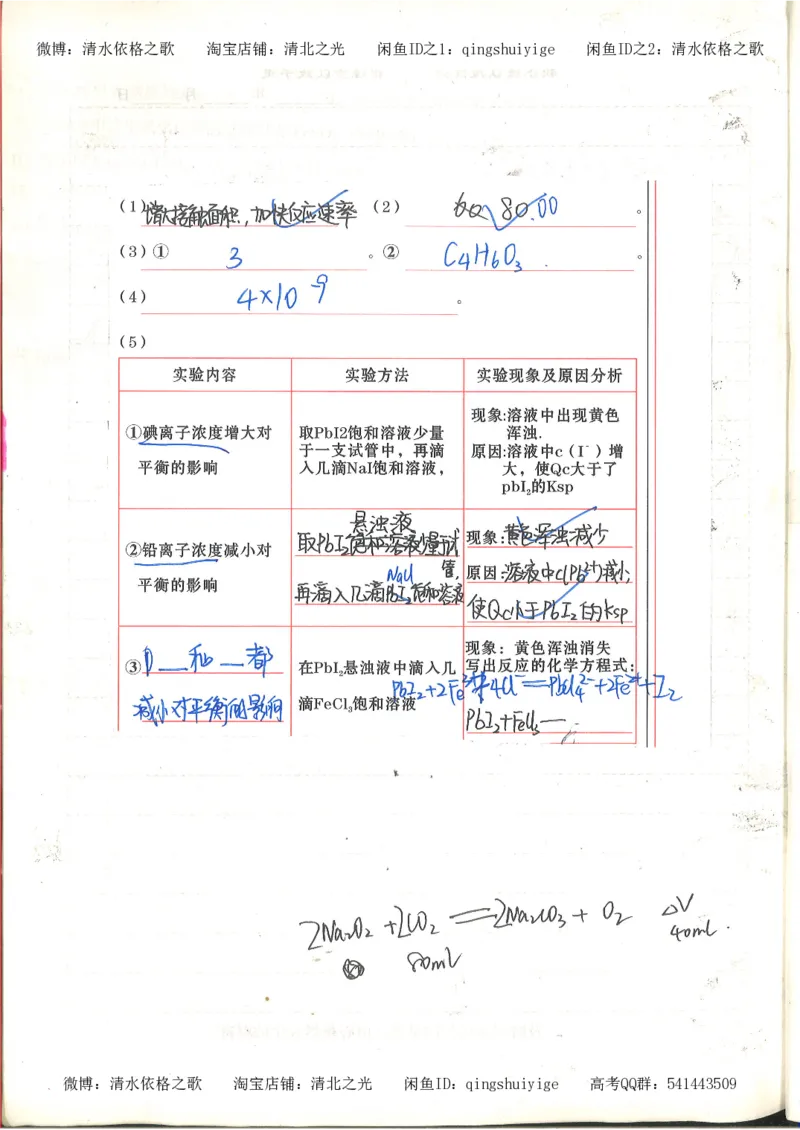 微博：清水依格之歌 淘宝店铺：清北之光 闲鱼ID之1：qingshuiyige 闲鱼ID之2：清水依格之歌
(1) 增大接触面积，加快反应速率 (2) 80.00 。
(3) ① 3 。② C₄H₆O₃ 。
(4) 4×10⁻⁹ 。
(5)
实验内容 实验方法 实验现象及原因分析
①碘离子浓度增大对
平衡的影响
取PbI2饱和溶液少量
于一支试管中，再滴
入几滴NaI饱和溶液，
现象:溶液中出现黄色
浑浊.
原因:溶液中c（I⁻）增
大，使Qc大于了
pbI₂的Ksp
②铅离子浓度减小对
平衡的影响
悬浊液
取PbI₂饱和溶液少量于试
管，
NaCl
再滴入几滴PbI₂饱和溶液
现象:黄色浑浊减少
原因:溶液中c(Pb²⁺)减小
使Qc小于PbI₂的Ksp
③ 和 都
减小对平衡的影响
在PbI₂悬浊液中滴入几
滴FeCl₃饱和溶液
现象：黄色浑浊消失
写出反应的化学方程式：
PbI₂+2Fe³⁺+4Cl⁻=PbCl₄²⁻+2Fe²⁺+I₂
PbI₂+FeCl₃—
2Na₂O₂+2CO₂=2Na₂CO₃+O₂ ΔV
80ml 40ml.
微博：清水依格之歌 淘宝店铺：清北之光 闲鱼ID：qingshuiyige 高考QQ群：541443509